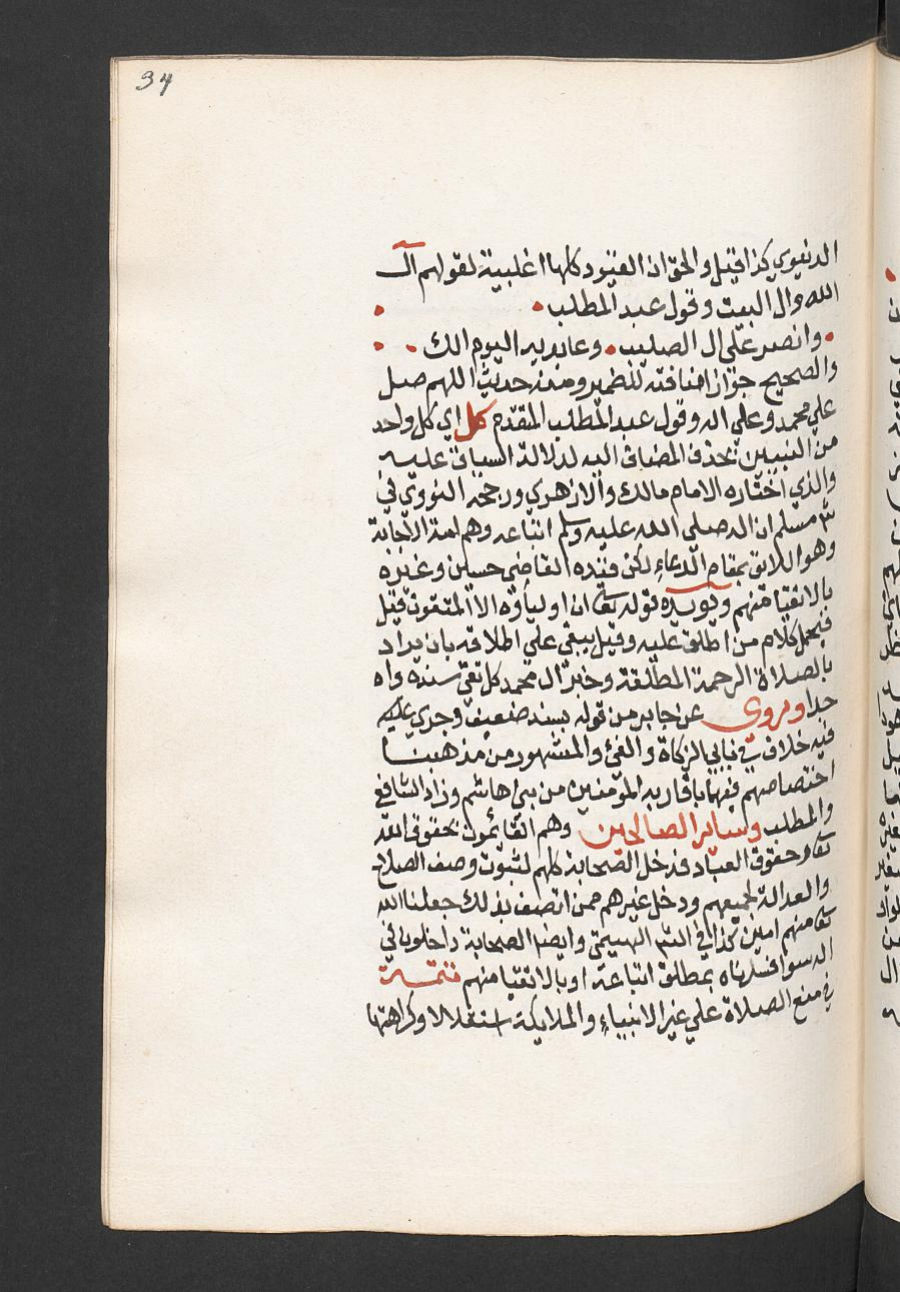 34
الدنيوي كذا قيل والحق ان القيود كلها اغلبية لقولهم آل
الله وال البيت وقول عبد المطلب
وانصر على ال الصليب وعابديه اليوم الك
والصحيح جواز اضافته للضمير ومنه حديث اللهم صل
علي محمد وعلي اله وقول عبد المطلب المتقدم كل اي كل واحد
من النبيين بحذف المضاف اليه لدلالة السياق عليه
والذي اختاره الامام مالك والازهري ورجحه النووي في
شرح مسلم ان اله صلى الله عليه وسلم اتباعه وهم امة الاجابة
وهو اللايق بمقام الدعاء لكن قيده القاضي حسين وغيره
بالاتقيا منهم ويويده قوله تعا ان اولياؤه الا المتقون قيل
فيحمل كلام من اطلق عليه وقيل يبقي علي اطلاقه بان يراد
بالصلاة الرحمة المطلقة وخبر ال محمد كل تقي سنده واه
جدا وروي عن جابر من قوله بسند ضعيف وجري عليه
فيه خلاف في بابي الزكاة والفئ والمشهور من مذهبنا
اختصاصهم فيها باقاربه المومنين من بني هاشم وزاد الشافعي
والمطلب وساير الصالحين وهم القائمون بحقوق الله
تعا وحقوق العباد فدخل الصحابة كلهم لثبوت وصف الصلاح
والعدالة لجميعهم ودخل غيرهم ممن اتصف بذلك جعلنا الله
تعا منهم امين كذا في الشر الهيتمي وايضا الصحابة داخلون في
الال سوا فسرناه بمطلق اتباعه او بالاتقيا منهم تتمة
في منع الصلاة علي غير الانبياء والملايكة استقلالا وكراهتها